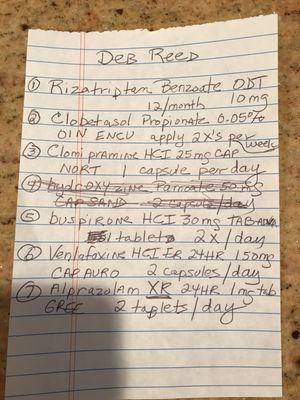 DEB REED
① Rizatriptan Benzoate ODT
12/month 10mg
② Clobetasol Propionate 0.05%
OIN ENCU apply 2X's per week
③ Clomipramine HCI 25mg CAP
NORT 1 capsule per day
④ hydroxyzine Pamoate 50 mg
CAP SAND 2 capsule/day
⑤ buspirone HCI 30mg TAB
1 tablet 2X/day
⑥ Venlafaxine HCI ER 24HR 150mg
CAP AURO 2 capsules/day
⑦ Alprazolam XR 24HR 1mg tab
GREE 2 tablets/day